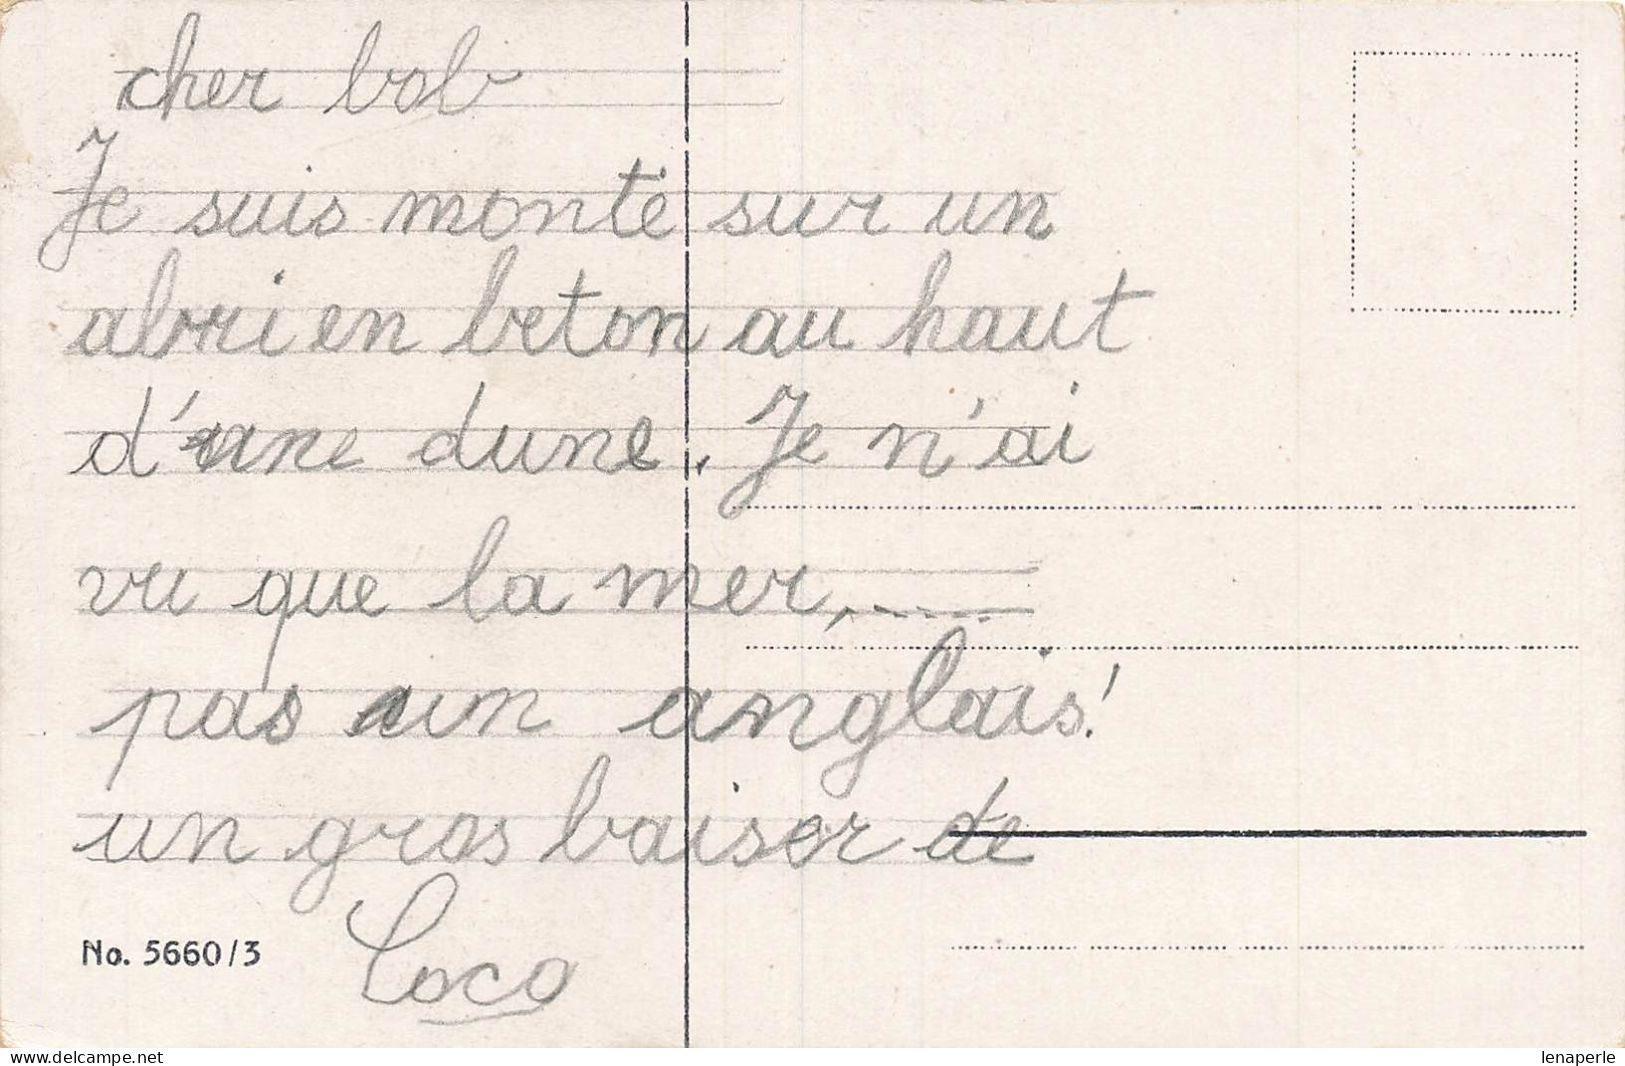 cher bob
Je suis monté sur un
abri en beton au haut
d'une dune. Je n'ai
vu que la mer,
pas un anglais!
un gros baiser de
Coco
No. 5660/3
www.delcampe.net
lenaperle